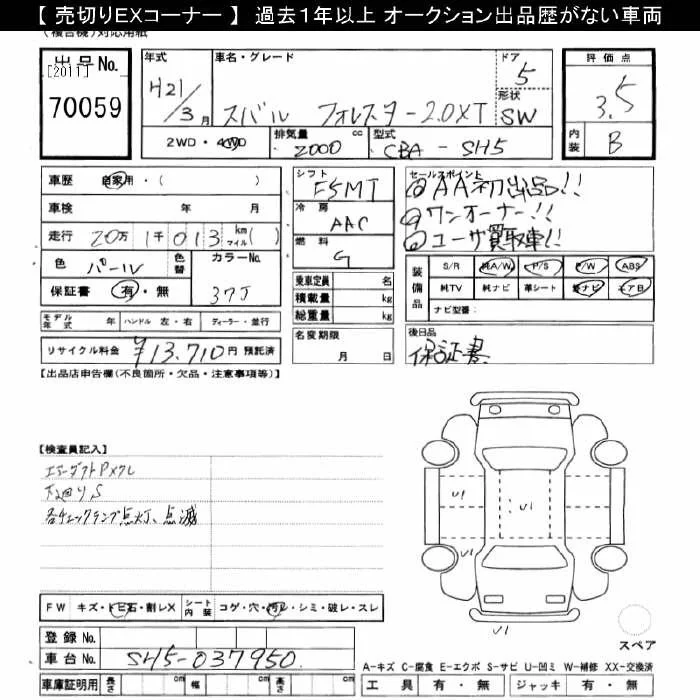 【 売切りEXコーナー 】 過去1年以上 オークション出品歴がない車両
(複合機)対応用紙
出品No.
[2011]
70059
年式 車名・グレード ドア
H21/3月 スバル フォレスター 2.0XT 5
形状 SW
2WD・4WD 排気量 2000 cc 型式 CBA-SH5
評価点
3.5
内装 B
車歴 自家用・( )
車検 年 月
走行 20万 1千 013 km マイル( )
色 パール 色替 カラーNo. 37J
保証書 有・無
シフト F5MT
冷房 AAC
燃料 G
乗車定員 名
積載量 kg
総重量 kg
名変期限
月 日
セールスポイント
◎AA初出品!!
◎ワンオーナー!!
◎ユーザ買取車!!
装備品 S/R 純A/W P/S P/W ABS
純TV 純ナビ 革シート
ナビ型番:
後日品
保証書
モデル年式 年 ハンドル 左・右 ディーラー・並行
リサイクル料金 ¥13,710円 預託済
【出品店申告欄(不良箇所・欠品・注意事項等)】
【検査員記入】
下廻りS
各チェックランプ点灯、点滅
FW キズ・トビ石・割レX シート内装 コゲ・穴・汚レ・シミ・破レ・スレ
登録 No.
車台 No. SH5-037950
車庫証明用 長さ cm 幅 cm 高さ cm
U1
U1
U1
U1
スペア
A-キズ C-腐食 E-エクボ S-サビ U-凹ミ W-補修 XX-交換済
工具 有・無 ジャッキ 有・無